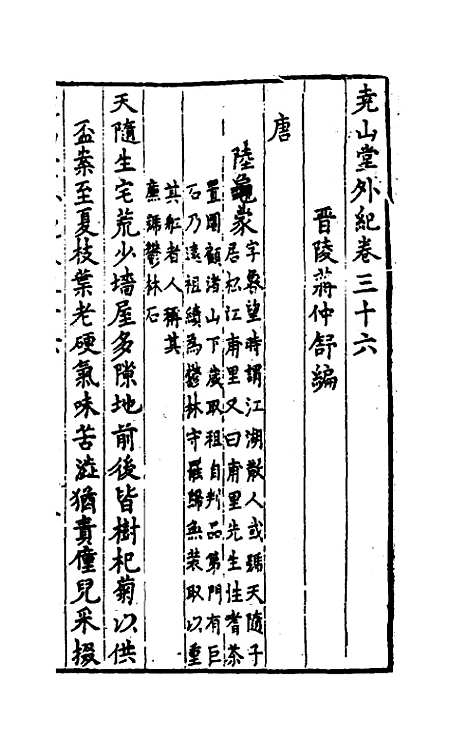 堯山堂外紀卷三十六
晋陵蔣仲舒編
唐
陸龜蒙
字魯望時謂江湖散人或號天隨子
居松江甫里又曰甫里先生性耆茶
置園顧渚山下歲取租自判品第門有巨
石乃遠祖績為鬱林守罷歸無装取以重
其舡者人稱其
亷號鬱林石
天隨生宅荒少墻屋多隙地前後皆樹杞菊以供
盃案至夏枝葉老硬氣味苦澁猶責僮兒采掇